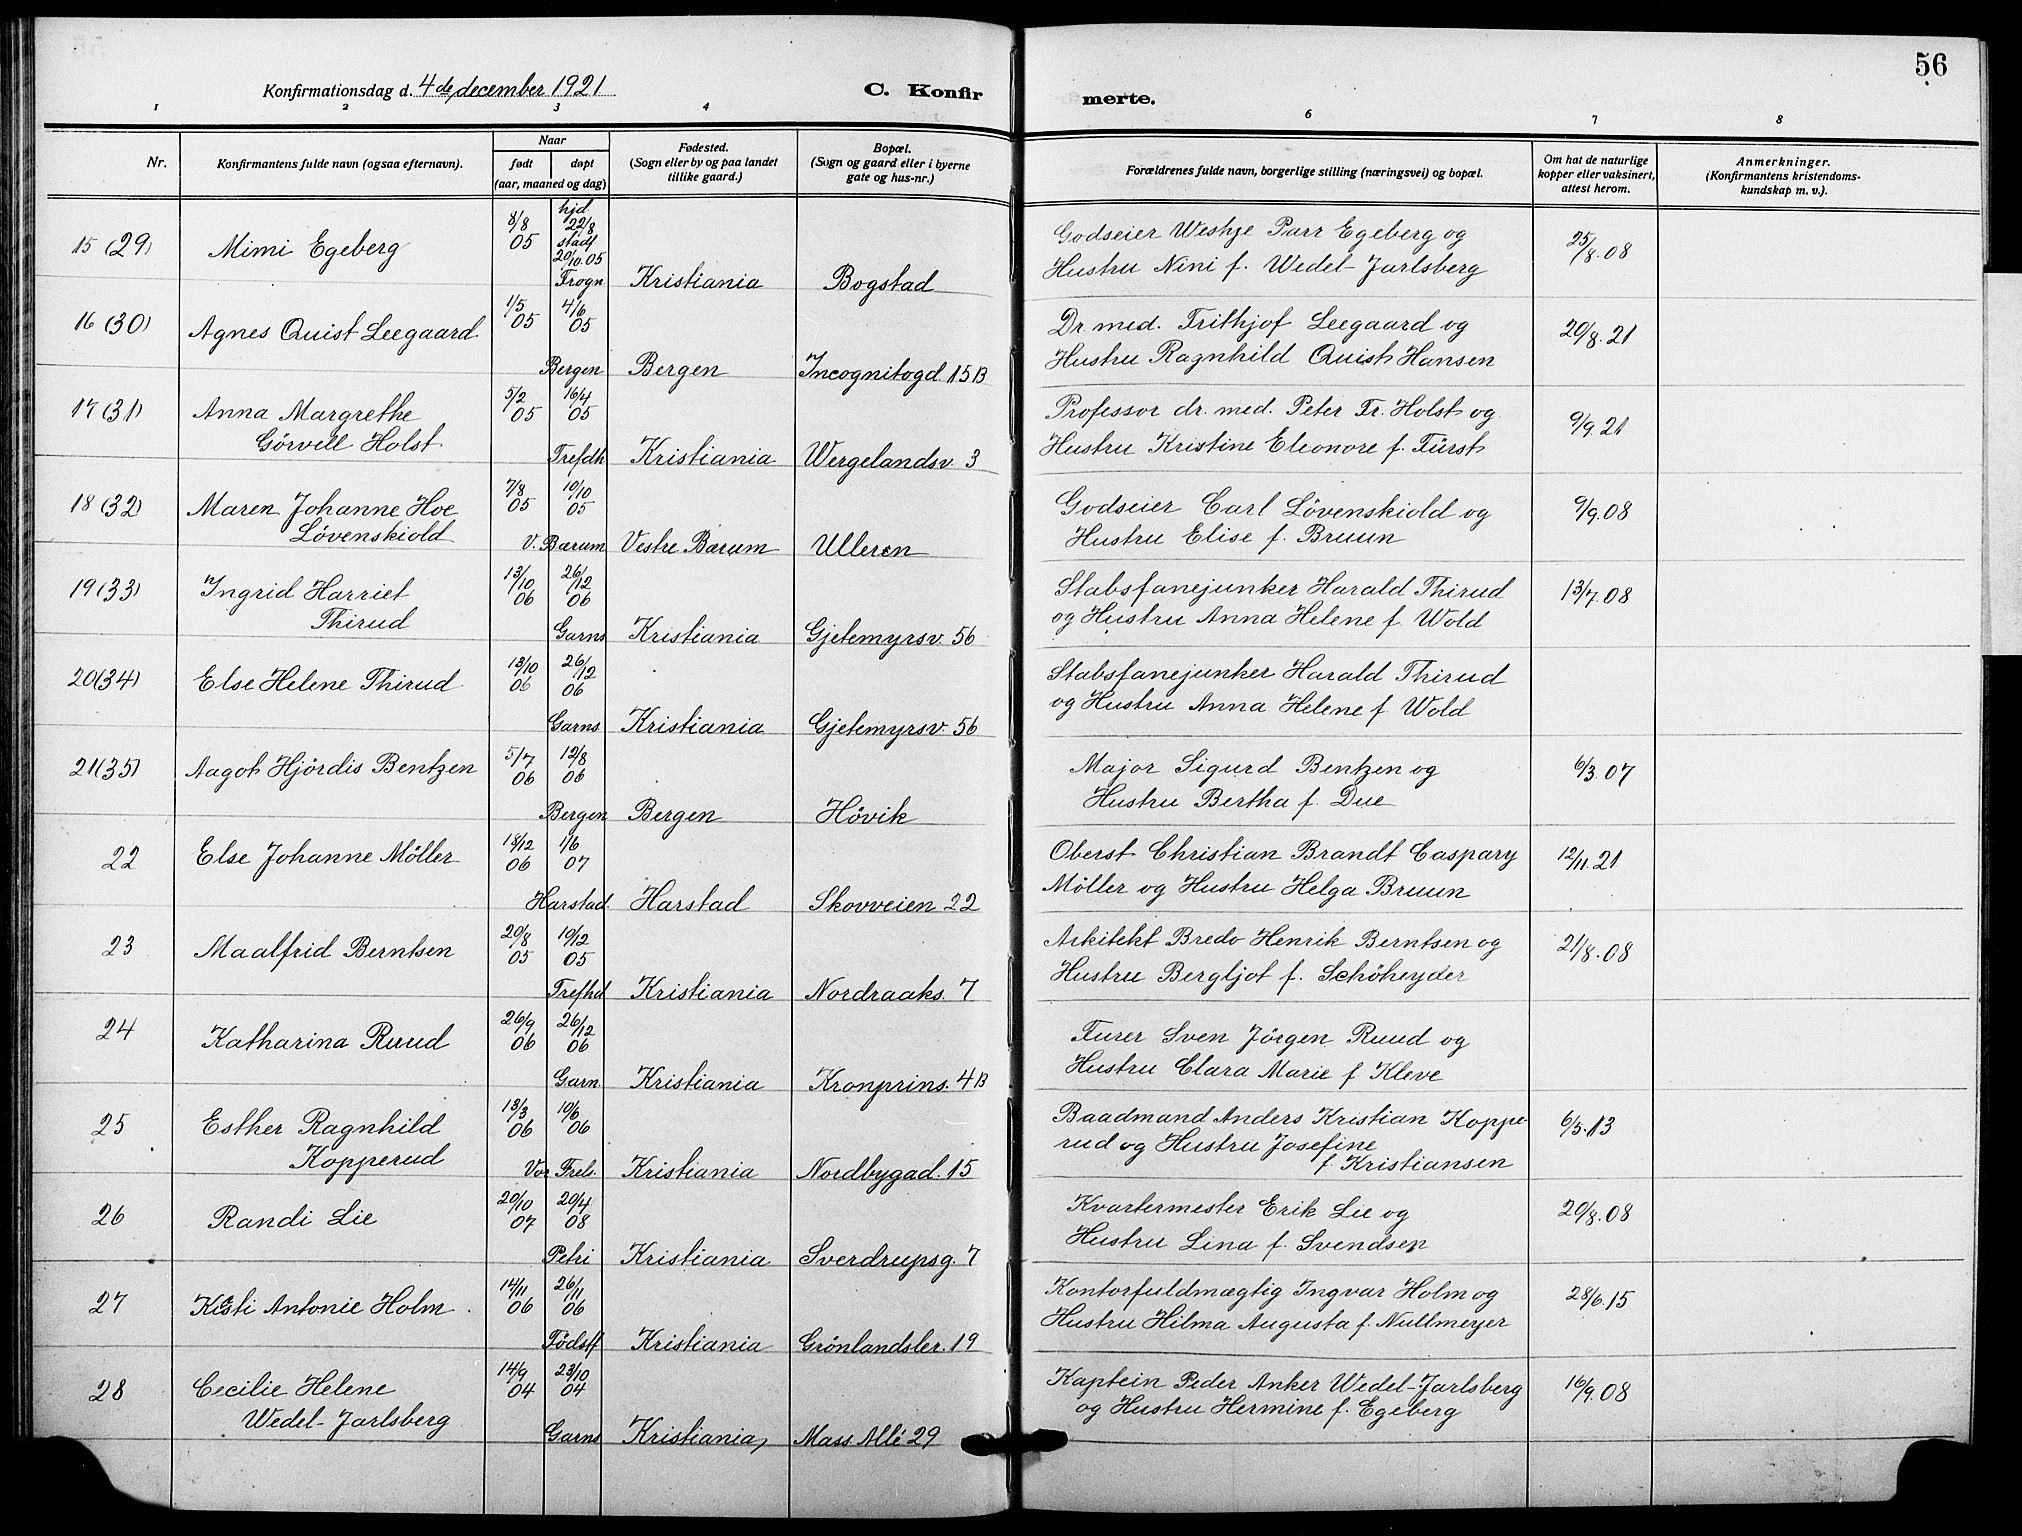 56
Konfirmationsdag d. 4de december 1921
C. Konfirmerte.
1 2 3 4 6 7 8
Nr.
Konfirmantens fulde navn (ogsaa efternavn).
Naar
født
døpt
(aar, maaned og dag)
Fødested.
(Sogn eller by og paa landet
tillike gaard.)
Bopæl.
(Sogn og gaard eller i byerne
gate og hus-nr.)
Forældrenes fulde navn, borgerlige stilling (næringsvei) og bopæl.
Om hat de naturlige
kopper eller vaksinert,
attest herom.
Anmerkninger.
(Konfirmantens kristendoms-
kundskap m. v.).
15 (29) Mimi Egeberg 8/8 05 hjd. 22/8 stadf 20/10.05 Frogn Kristiania Bogstad
Godseier Westye Parr Egeberg og
Hustru Nini f. Wedel-Jarlsberg
25/8.08
16 (30) Agnes Quist Leegaard 1/5 05 4/6 05 Bergen Bergen Incognitogd 15B
Dr. med. Frithjof Leegaard og
Hustru Ragnhild Quist Hansen
20/8.21
17 (31) Anna Margrethe
Görvell Holst 5/2 05 16/4 05 Trefdh Kristiania Wergelandsv. 3
Professor dr. med. Peter Fr. Holst og
Hustru Kristine Eleonore f. Fürst
9/9.21
18 (32) Maren Johanne Hoe
Lövenskiold 7/8 05 10/10 05 V. Bærum Vestre Bærum Ulleren
Godseier Carl Lövenskiold og
Hustru Elise f. Bruun
9/9.08
19 (33) Ingrid Harriet
Thirud 13/10 06 26/12 06 Garns Kristiania Gjetemyrsv. 56
Stabsfanejunker Harald Thirud
og Hustru Anna Helene f. Wold
13/7.08
20 (34) Else Helene Thirud 13/10 06 26/12 06 Garns Kristiania Gjetemyrsv. 56
Stabsfanejunker Harald Thirud
og Hustru Anna Helene f. Wold
21 (35) Aagot Hjördis Bentzen 5/7 06 12/8 06 Bergen Bergen Hövik
Major Sigurd Bentzen og
Hustru Bertha f. Due
6/3.07
22 Else Johanne Möller 18/12 06 1/6 07 Harstad. Harstad Skovveien 22
Oberst Christian Brandt Caspary
Möller og Hustru Helga Bruun
12/11.21
23 Maalfrid Berntsen 20/8 05 10/12 05 Trefhd Kristiania Nordraaks. 7
Arkitekt Bredo Henrik Berntsen og
Hustru Bergljot f. Schöheyder
21/8.08
24 Katharina Ruud 26/9 06 26/12 06 Garn. Kristiania Kronprins. 4B
Furer Sven Jörgen Ruud og
Hustru Clara Marie f. Kleve
25 Esther Ragnhild
Kopperud 18/3 06 10/6 06 Vor Frels. Kristiania Nordbygad. 15
Baadmand Anders Kristian Koppe-
rud og Hustru Josefine
f. Kristiansen
6/5.13
26 Randi Lie 20/10 07 20/4 08 Petri Kristiania Sverdrupsg. 7
Kvartermester Erik Lie og
Hustru Lina f. Svendsen
20/8.08
27 Antonie Holm 14/11 06 26/11 06 Födslf Kristiania Grönlandsler. 19
Kontorfuldmægtig Ingvar Holm og
Hustru Hilma Augusta f. Nullmeyer
28/6.15
28 Cecilie Helene
Wedel-Jarlsberg 14/9 04 23/10 04 Garns Kristiania, Mass Allé 29
Kaptein Peder Anker Wedel-Jarlsberg
og Hustru Hermine f. Egeberg
16/9.08